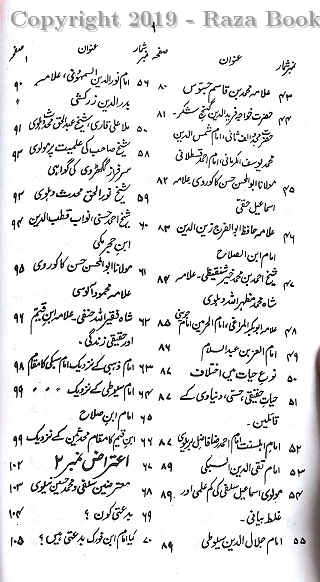 Copyright 2019 - Raza Book
نمبر شمار عنوان صفحہ
۴۳ علامہ محمد بن قاسم جسوس ۸۰
۴۴ حضرت خواجہ فرید الدین گنج شکر۔ ۸۱
حضرت مجدد الف ثانی، امام شمس الدین
محمد یوسف الکرمانی، امام احمد قسطلانی
۴۵ مولانا ابوالحسن حسن کاکوروی علامہ ۸۲
اسماعیل حقی
۴۶ علامہ حافظ ابوالفرج زین الدین ۸۳
امام ابن الصلاح
۴۷ شیخ احمد بن محمد خیر شنقیطی۔ علامہ ۸۴
شاہ محمد مظہر اللہ دہلوی
۴۸ علامہ ابوبکر المراغی، امام الحرمین امام جوینی ۸۵
۴۹ امام العز بن عبد السلام ۸۶
۵۰ نوع حیات میں اختلاف ۸۷
۵۱ حیات حقیقی، حسی، دنیاوی کے ۸۷
قائلین۔
۵۲ امام اہلسنت امام احمد رضا فاضل بریلوی ۸۷
۵۳ امام تقی الدین السبکی ۸۹
۵۴ مولوی اسماعیل سلفی کی کم علمی اور ۸۹
غلط بیانی۔
۵۵ امام جلال الدین سیوطی ۸۹
نمبر شمار عنوان صفحہ
۵۶ امام نور الدین السمہودی، علامہ ۹۰
بدر الدین زرکشی
۵۷ ملا علی قاری، شیخ عبد الحق محدث دہلوی ۹۱
۵۸ شیخ صاحب کی علمیت پر مولوی ۹۳
سرفراز گکھڑوی کی گواہی
۵۹ شیخ نور الحق محدث دہلوی ۹۳
۶۰ نواب قطب الدین ۹۴
ابن حجر مکی
۶۱ مولانا ابوالحسن حسن کاکوروی ۹۵
علامہ محمود آلوسی
۶۲ شاہ فقیر اللہ حنفی۔ علامہ ابن قیم ۹۶
اور حقیقی زندگی۔
۶۳ امام ذہبی کے نزدیک امام سبکی کا مقام ۹۸
۶۴ امام سیوطی کے نزدیک 〃 〃 〃 ۹۹
۶۵ امام ابن صلاح
۶۶ ابن قیم کا مقام محدثین کے نزدیک ۹۹
۶۷ اعتراض نمبر ۲ ۱۰۲
۶۸ معترضین سلفی و محمد حسین نیلوی ۱۰۳
۶۹ بدعتی کون؟ ۱۰۴
۷۰ کیا امام ابن فورک بدعتی ہیں؟ ۱۰۵